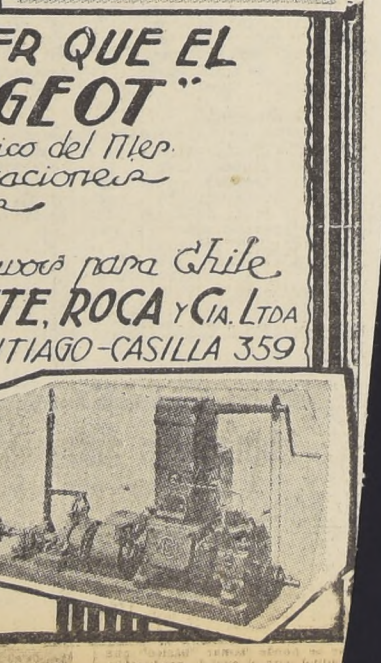 ER QUE EL
GEOT"
ico del Mes.
aciones
para Chile
TE, ROCA Y CIA. LTDA
NTIAGO-CASILLA 359